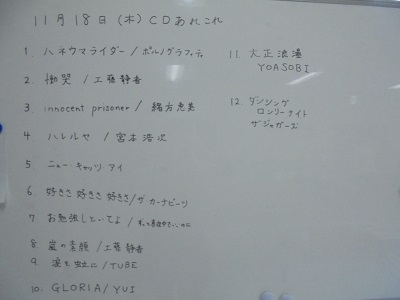 11月18日(木)CDあれこれ
1. ハネウマライダー/ポルノグラフィティ
2. 慟哭/工藤静香
3 innocent prisoner/緒方恵美
4 ハレルヤ/宮本浩次
5 ニューキャッツアイ
6. 好きさ好きさ好きさ/ザカーナビーツ
7 お勉強しといてよ/ずっと真夜中でいいのに
8 嵐の素顔/工藤静香
9. 涙を虹に/TUBE
10. GLORIA/YUI
11. 大正浪漫
YOASOBI
12. ダンシング
ロンリーナイト
ザジャガーズ